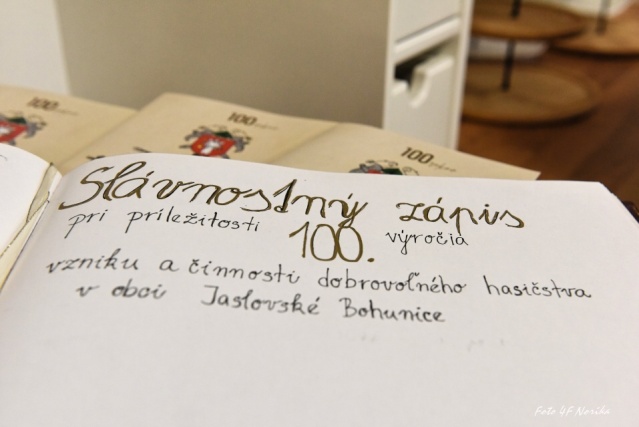 100
100
100
Slávnostný zápis
pri príležitosti 100. výročia
vzniku a činnosti dobrovoľného hasičstva
v obci Jaslovské Bohunice
Foto 4F Norika